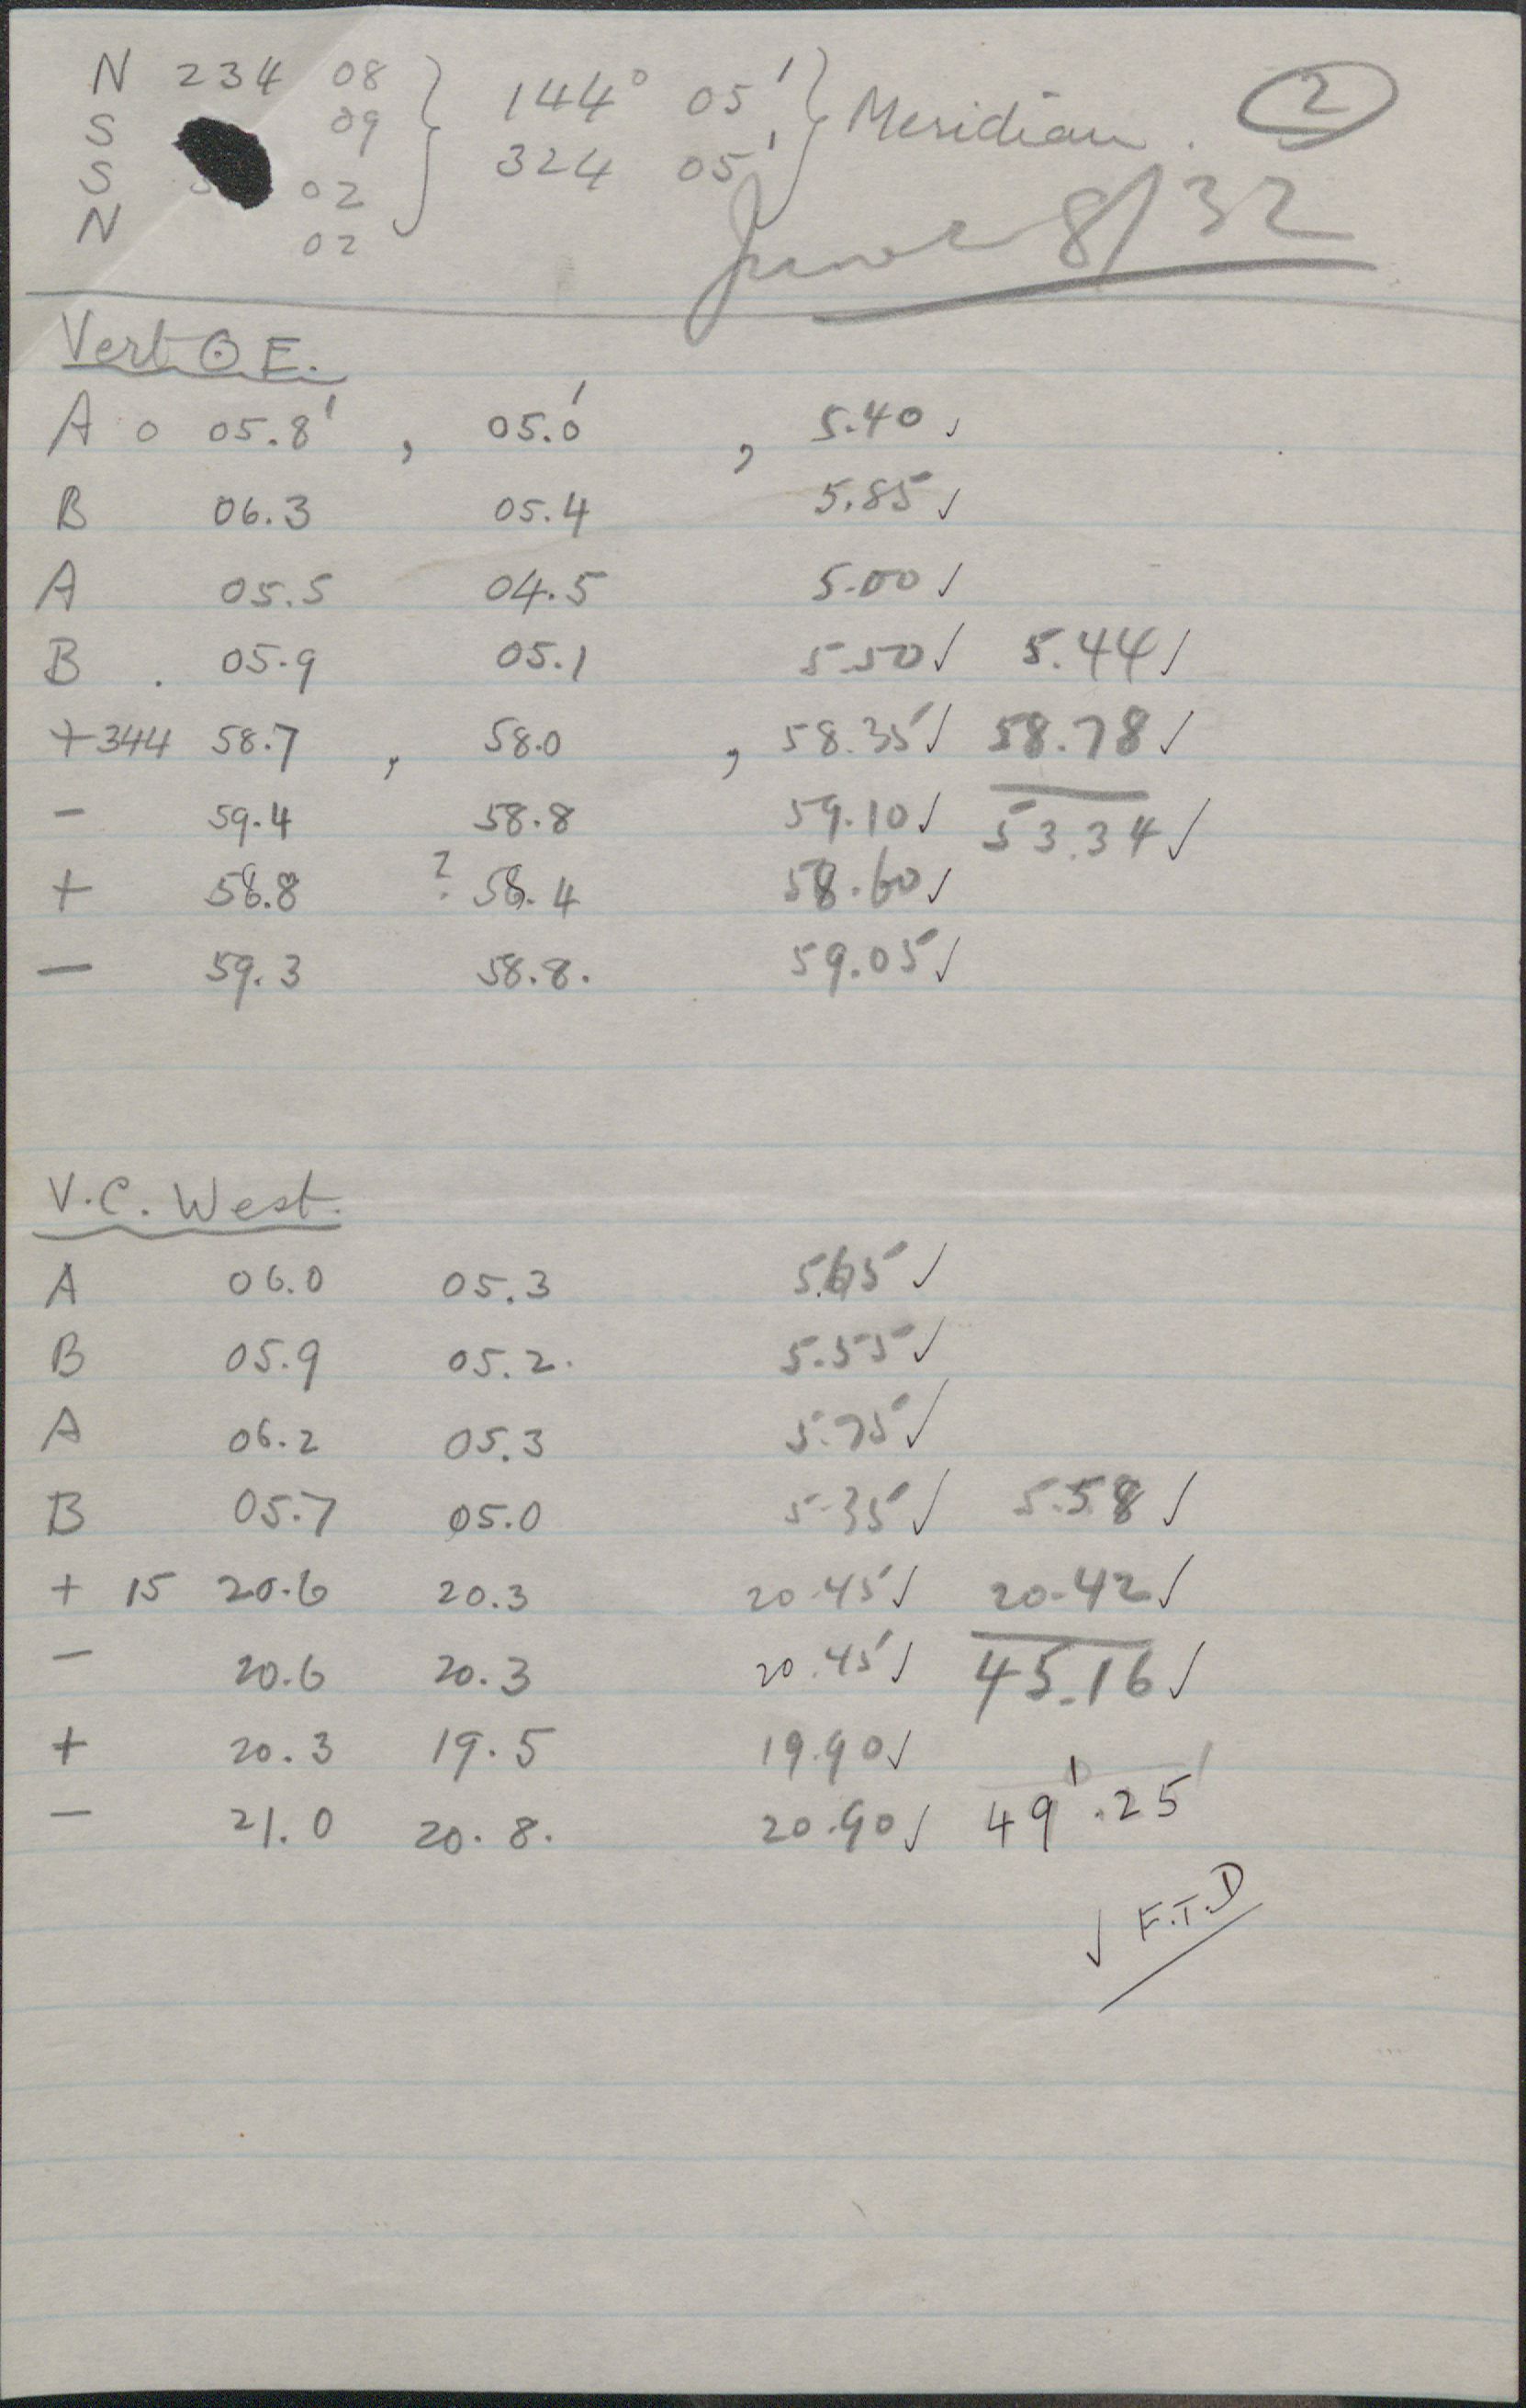 N 234 08 } 144° 05' } Meridian. 2
S 09 324 05'
S 02
N 02
June 8/32
Vert ⊙ E.
A 0 05.8' , 05.0' , 5.40 ✓
B 06.3 05.4 5.85 ✓
A 05.5 04.5 5.00 ✓
B . 05.9 05.1 5.50 ✓ 5.44 ✓
+344 58.7 , 58.0 , 58.35 ✓ 58.78 ✓
− 59.4 58.8 59.10 ✓ 53.34 ✓
+ 58.8 ? 58.4 58.60 ✓
− 59.3 58.8. 59.05 ✓
V.C. West.
A 06.0 05.3 5.65 ✓
B 05.9 05.2. 5.55 ✓
A 06.2 05.3 5.75 ✓
B 05.7 05.0 5.35 ✓ 5.58 ✓
+ 15 20.6 20.3 20.45 ✓ 20.42 ✓
− 20.6 20.3 20.45 ✓ 45.16 ✓
+ 20.3 19.5 19.90 ✓
− 21.0 20.8. 20.90 ✓ 49'.25
✓ F.T.D